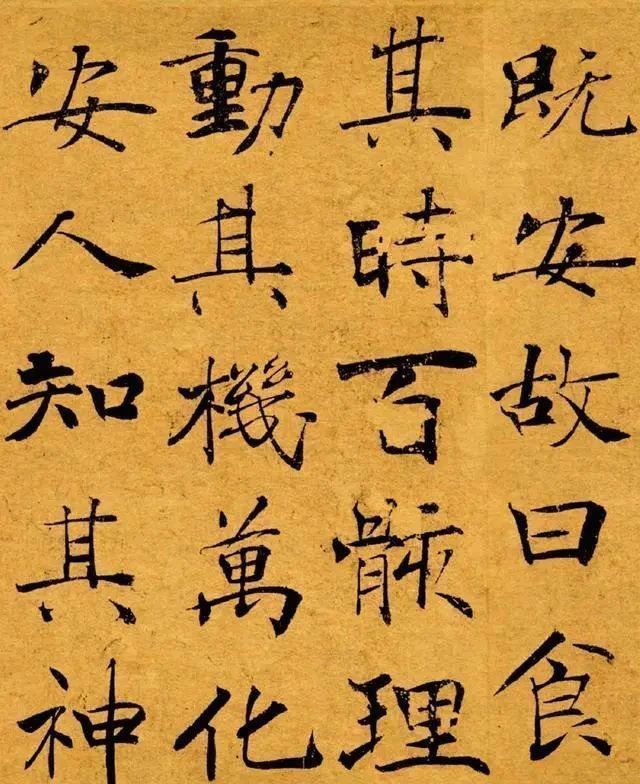 既安故曰食
其時百骸理
動其機萬化
安人知其神